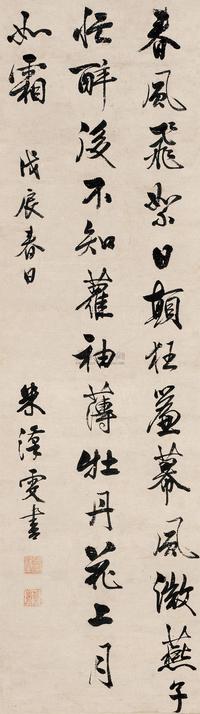 春風飛絮日顛狂簾幕風微燕子
忙醉後不知羅袖薄牡丹花上月
如霜
戊辰春日
朱漢雯書